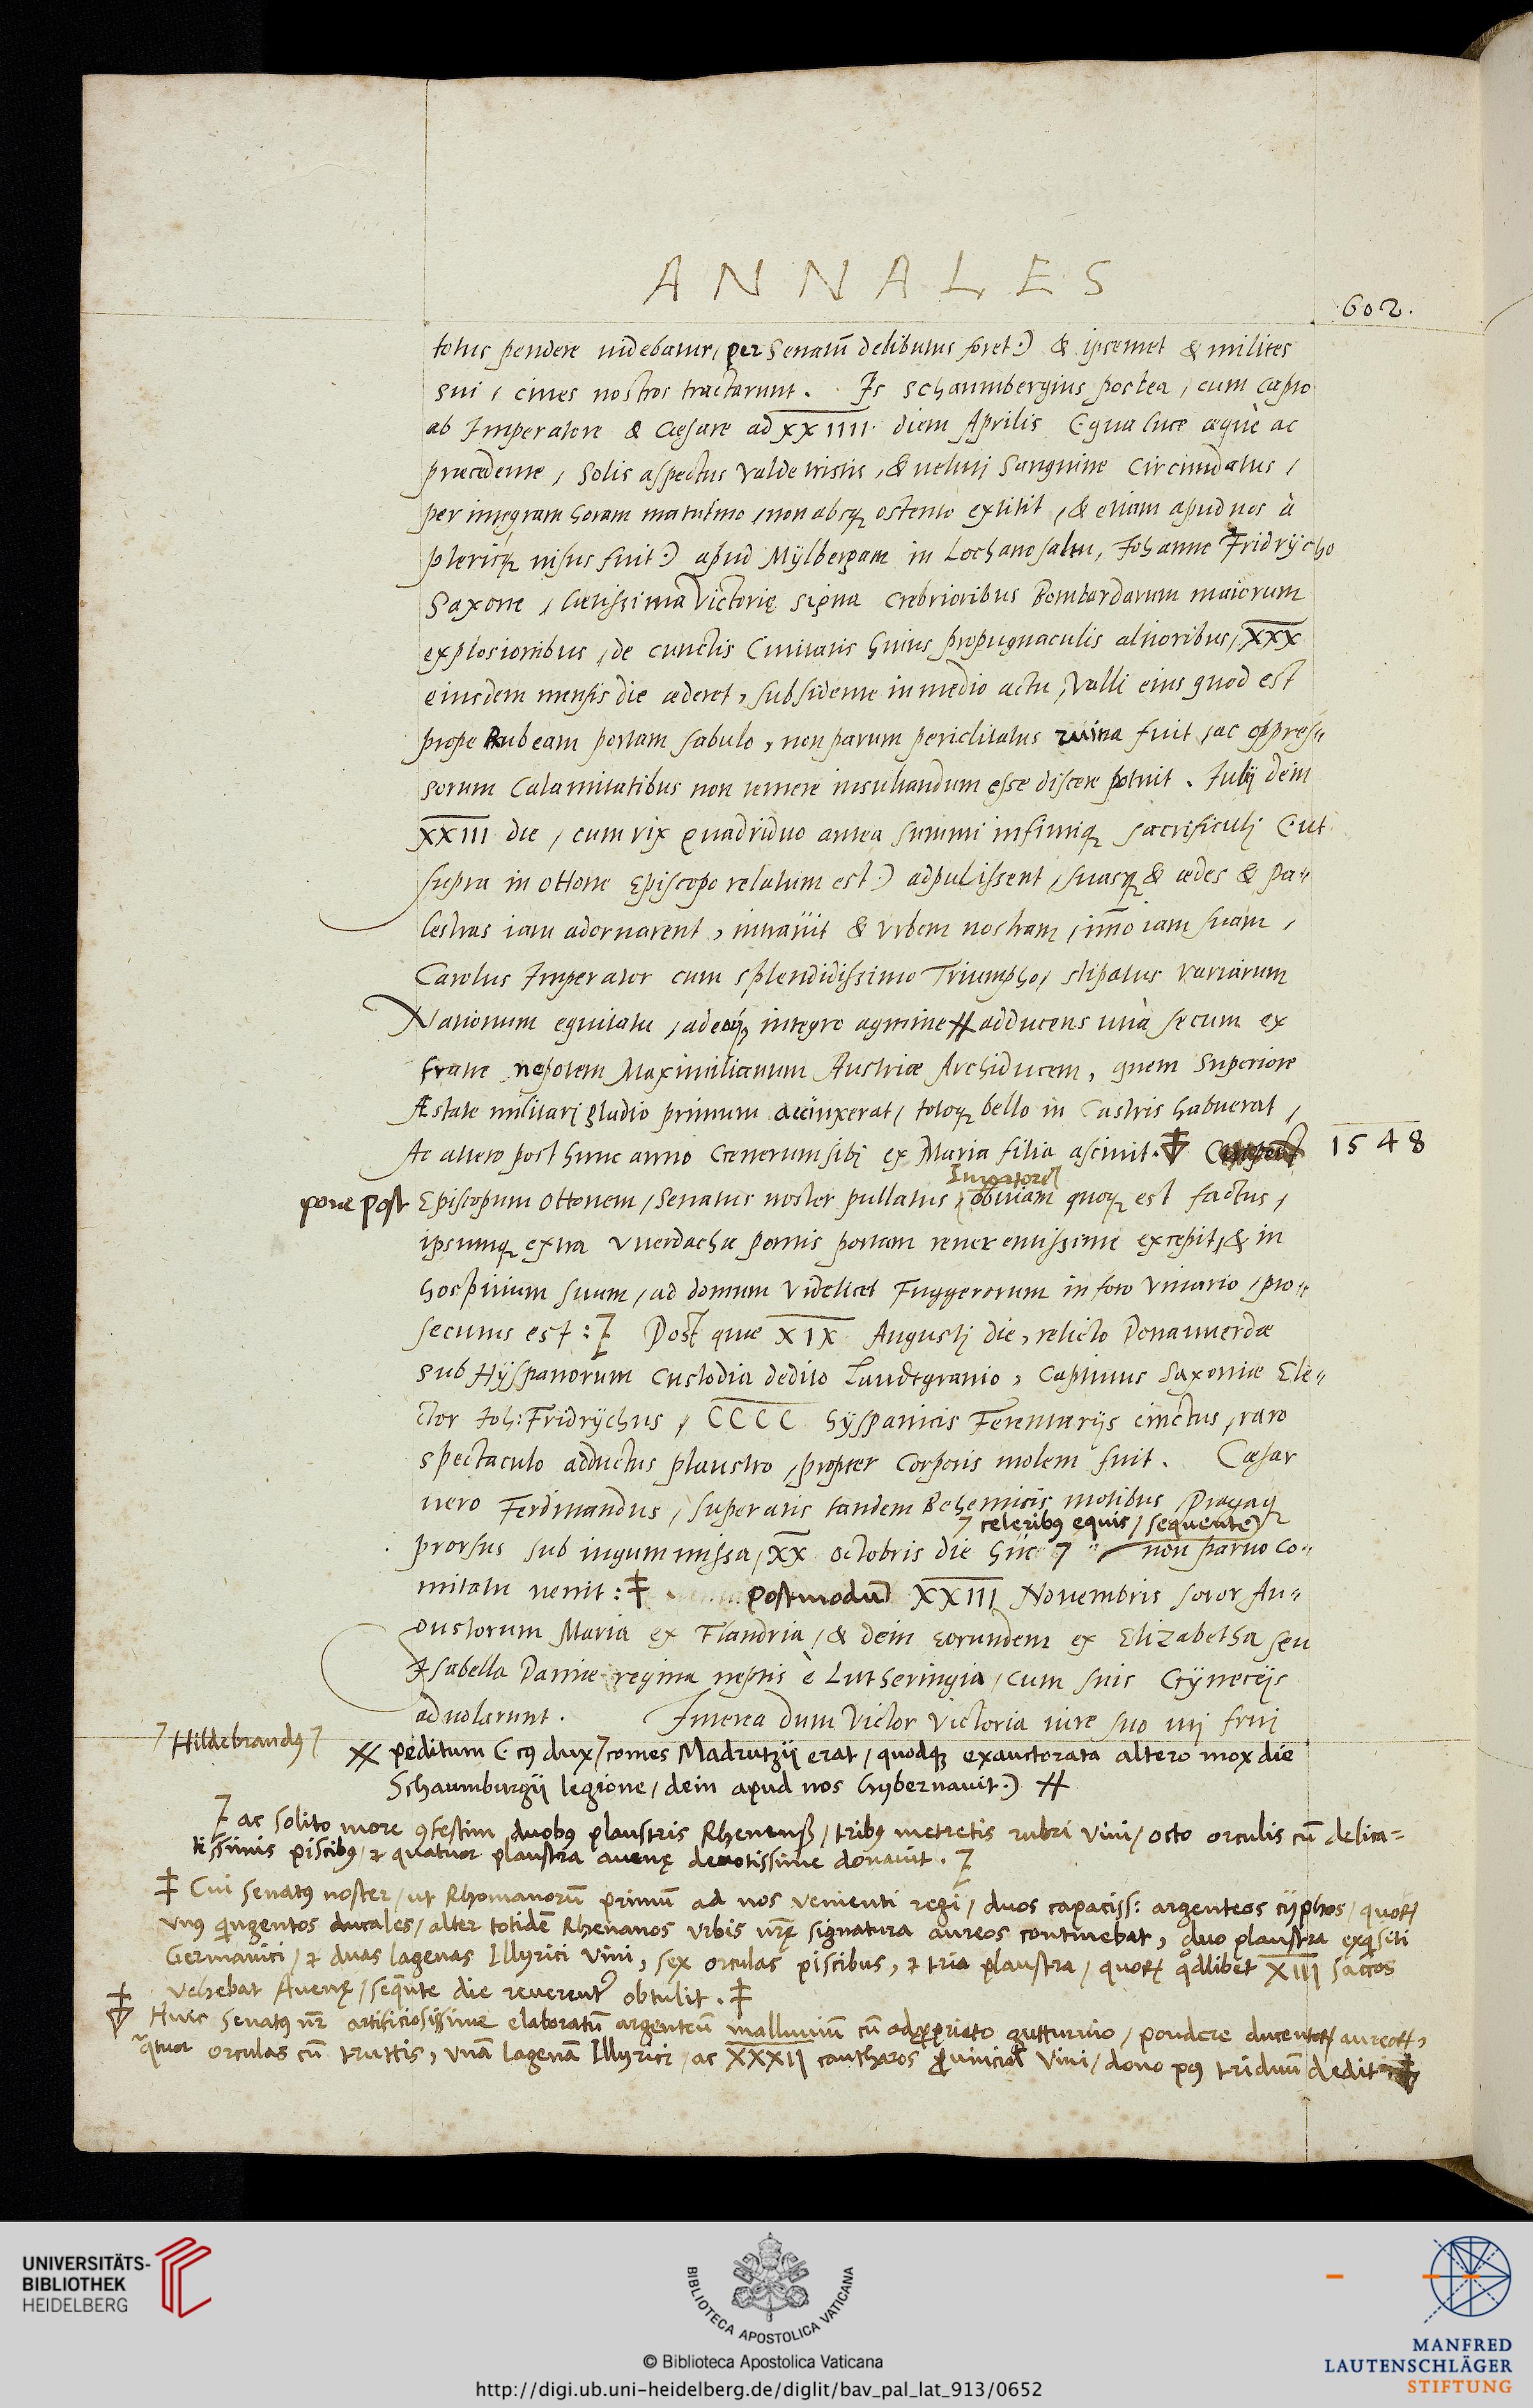 ANNALES
602.
totus pendere uidebatur, per Senatū delibutus foret.) & ipsemet & milites
sui, ciues nostros tractarunt. Is Schaumbergius postea, cum capto
ab Imperatore & Cæsare ad XXIIII diem Aprilis (qua luce æquè ac
præcedente, Solis aspectus valde tristis, & veluti Sanguine Circūdatus,
per integram horam matutino, non absq; ostento extitit, & etiam apud nos à
plerisq; uisus fuit.) apud Mÿlbergam in Lochano saltu, Johanne Fridrÿcho
Saxone, lætissima Victorię signa crebrioribus Bombardarum maiorum
explosionibus, de cunctis Ciuitatis huius propugnaculis altioribus, XXX
eiusdem mensis die æderet, subsidente in medio actu, Valli eius quod est
prope Rubeam portam sabulo, non parum periclitatus ruina fuit, ac oppres-
sorum Calamitatibus non temere insultandum esse discere potuit. Julij dein
XXIII die, cum vix quadriduo antea summi infimiq; sacrificulj (ut
supra in Ottone Episcopo relatum est.) adpulissent, suasq; & ædes & Pa-
lestras iam adornarent, intrauit & Vrbem nostram, imo iam suam,
Carolus Imperator cum splendidissimo Triumpho, stipatus variarum
Nationum equitatu, adeoq; integro agmine adducens unà secum ex
fratre nepotem Maximilianum Austriæ Archiducem, quem Superiore
Æstate militari gladio primum accinxerat, totoq; bello in Castris habuerat,
Ac altero post hunc anno Generum sibj ex Maria filia asciuit.
1548
pone post Episcopum Ottonem, Senatus noster pullatus, obuiam quoq; est factus,
Imperatorē
ipsumq; extra Vuerdachæ pontis portam reuerentissime excepit, & in
hospitium suum, ad domum videlicet Fuggerorum in foro Vinario, pro-
secutus est: Post quæ XIX Augustj die, relicto Donauuerdæ
sub Hÿspanorum Custodia dedito Landtgrauio, Captiuus Saxoniæ Ele-
ctor Joh: Fridrÿchus, CCCC hÿspanicis Ferentarijs cinctus, raro
spectaculo adductus plaustro, propter Corporis molem fuit. Cæsar
uero Ferdinandus, superatis tandem Bohemicis motibus, Pragaq;
celerib9 equis, sequente
prorsus sub iugum missa, XX octobris die huc non paruo Co-
mitatu uenit: Postmodū XXIII Nouembris soror Au-
gustorum Maria ex Flandria, & dein eorundem ex Elizabetha seu
Isabella Daniæ regina neptis è Lutheringia, cum suis Gÿneceijs
aduolarunt. Interea dum Victor Victoria iure suo uti frui
Hildebrand9
peditum (cui9 dux comes Madrutzij erat, quodq; exauctorata altero mox die
Schaumburgij legione, dein apud nos hybernauit.)
ac solito more 9festim duob9 plaustris Rhenensß, trib9 metretis rubri Vini, octo orculis cū delica=
tissimis piscib9, & quatuor plaustra auenę deuotissime donauit.
Cui senat9 noster, ut Rhomanorū primū ad nos venienti regi, duos capaciss: argenteos cÿphos, quoꝝ
vn9 qingentos ducales, alter totidē Rhenanos vrbis nrę signatura aureos continebat, duo plaustra exqsiti
Germanici, & duas lagenas Illyrici Vini, sex orculas piscibus, & tria plaustra, quoꝝ qdlibet XIII saccos
vehebat Auenę, sequente die reuerenter obtulit.
Huic Senat9 nr artificiosissime elaboratū argenteū malluuiū cū adpropriato gutturnio, pondere ducentoꝝ aureoꝝ,
qtuor orculas cū truttis, vnā lagenā Illyrici, ac XXXII cantharos prouincial Vini, dono p9 triduū dedit.
UNIVERSITÄTS-
BIBLIOTHEK
HEIDELBERG
BIBLIOTECA APOSTOLICA VATICANA
© Biblioteca Apostolica Vaticana
http://digi.ub.uni-heidelberg.de/diglit/bav_pal_lat_913/0652
MANFRED
LAUTENSCHLÄGER
STIFTUNG